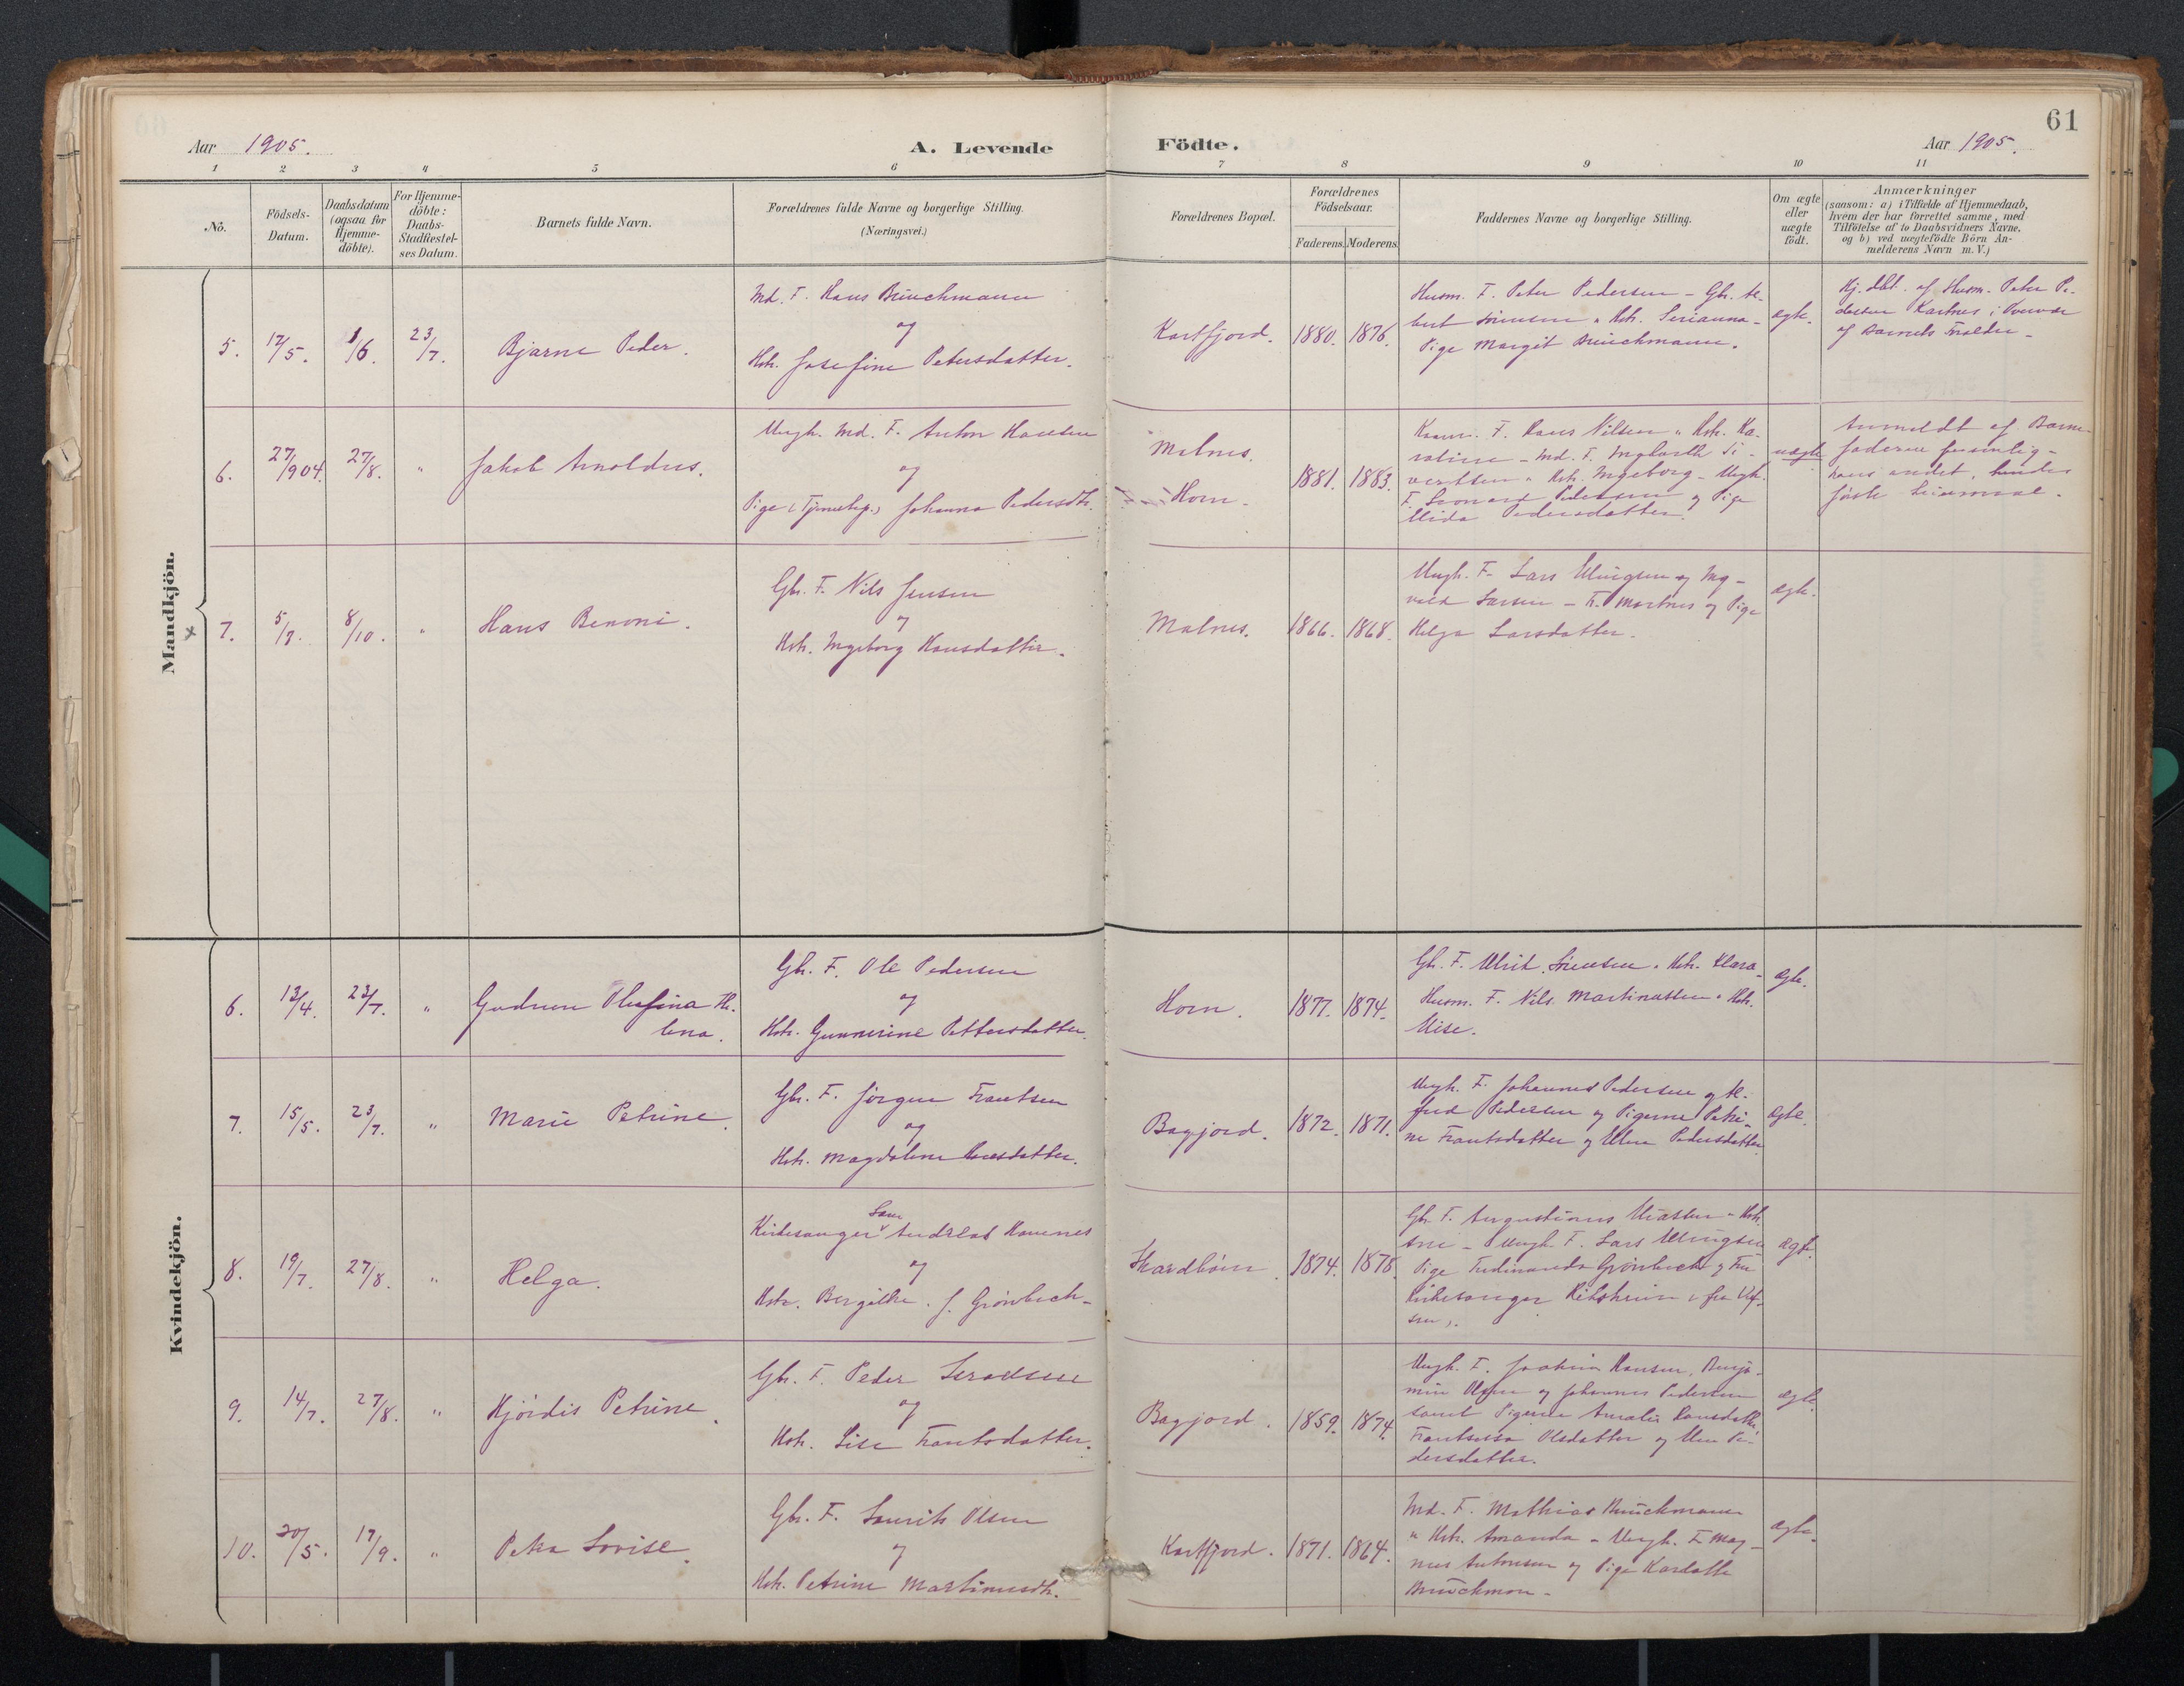 61
Aar 1905.
A. Levende Födte.
Aar 1905.
1 2 3 4 5 6 7 8 9 10 11
No.
Födsels-
Datum.
Daabsdatum
(ogsaa for
Hjemme-
döbte).
For Hjemme-
döbte:
Daabs-
Stadfæstel-
ses Datum.
Barnets fulde Navn.
Forældrenes fulde Navne og borgerlige Stilling.
(Næringsvei.)
Forældrenes Bopæl.
Forældrenes
Födselsaar.
Faderens. Moderens.
Faddernes Navne og borgerlige Stilling.
Om ægte
eller
uægte
födt.
Anmærkninger
(saasom: a) i Tilfælde af Hjemmedaab,
hvem der har forrettet samme, med
Tilföielse af to Daabsvidners Navne,
og b) ved uægtefödte Börn An-
melderens Navn m. V.)
Mandkjön.
5. 17/5. 1/6. 23/7. Bjarne Peder.
Md. F. Hans Brinchmann
og
Hstr. Josefine Petersdatter.
Kastfjord. 1880. 1876.
Husm. F. Peter Pedersen - Gbr. Al-
bert Sörensen " Hstr. Serianna -
Pige Margit Brinchmann.
ægte.
Hj. dbt. af Husm. Peter Pe-
dersen Kastnes i Overvær
af Barnets Forældre -
6. 27/904. 27/8. " Jakob Arnoldus.
Ungk. Md. F. Anton Hansen
og
Pige (Tjenestep.) Johanna Pedersdtr.
Malnes.
Horn.
1881. 1883.
F. Hans Nilsen " Hstr. Ka-
roline - Md. F. Ingbarth Si-
vertsen " Hstr. Ingeborg - Ungk.
F. Leonard Pedersen og Pige
Pedersdatter.
uægte
Anmeldt af Barne-
faderen personlig -
hans andet, hendes
förste Leiermaal.
7. 5/8. 8/10. " Hans Benoni.
Gbr. F. Nils Jensen
og
Hstr. Ingeborg Hansdatter.
Malnes. 1866. 1868.
Ungk. F. Lars Ellingsen og Ing-
vald Larsen - og Pige
Helga Larsdatter.
ægte.
Kvindekjön.
6. 13/4. 23/7. " Gudrun Olufina He-
lena.
Gbr. F. Ole Pedersen
og
Hstr. Gunnerine Pettersdatter.
Horn. 1877. 1874.
Gbr. F. Ulrik Sörensen " Hstr. Klara -
Husm. F. Nils Martinussen " Hstr.
Elise.
ægte.
7. 15/5. 23/7. " Marie Petrine.
Gbr. F. Jörgen Frantsen
og
Hstr. Magdalene Hansdatter.
Bagjord. 1872. 1871.
Ungk. F. Johannes Pedersen og Al-
fred Pedersen og Pigerne Petri-
ne Frantsdatter og Elen Pedersdatter.
ægte.
8. 19/7. 27/8. " Helga.
Kirkesanger Andreas Hovnes
og
Hstr. Bergitte f. Grönbech -
Skardbörn. 1874. 1878.
Gbr. F. Augustinus Eliassen " Hstr.
- Ungk. F. Lars Ellingsen
Pige Ferdinanda Grönbech og Fru
Kirkesanger
ægte.
9. 14/7. 27/8. " Hjördis Petrine.
Gbr. F. Peder
og
Hstr. Lise Frantsdatter.
Bagjord. 1859. 1874.
Ungk. F. Joakim Hansen, Benja-
min Olsen og Johannes Pedersen
samt Pigerne Amalie Hansdatter,
Olsdatter og Elen Pe-
dersdatter.
ægte.
10. 20/5. 17/9. " Petra Lovise.
Gbr. F. Laurits Olsen
og
Hstr. Petrine Martinusdtr.
Kastfjord. 1871. 1864.
Md. F. Mathias Brinchmann
" Hstr. Amanda - Ungk. F. Mag-
nus Antonsen og Pige
Brinchman -
ægte.